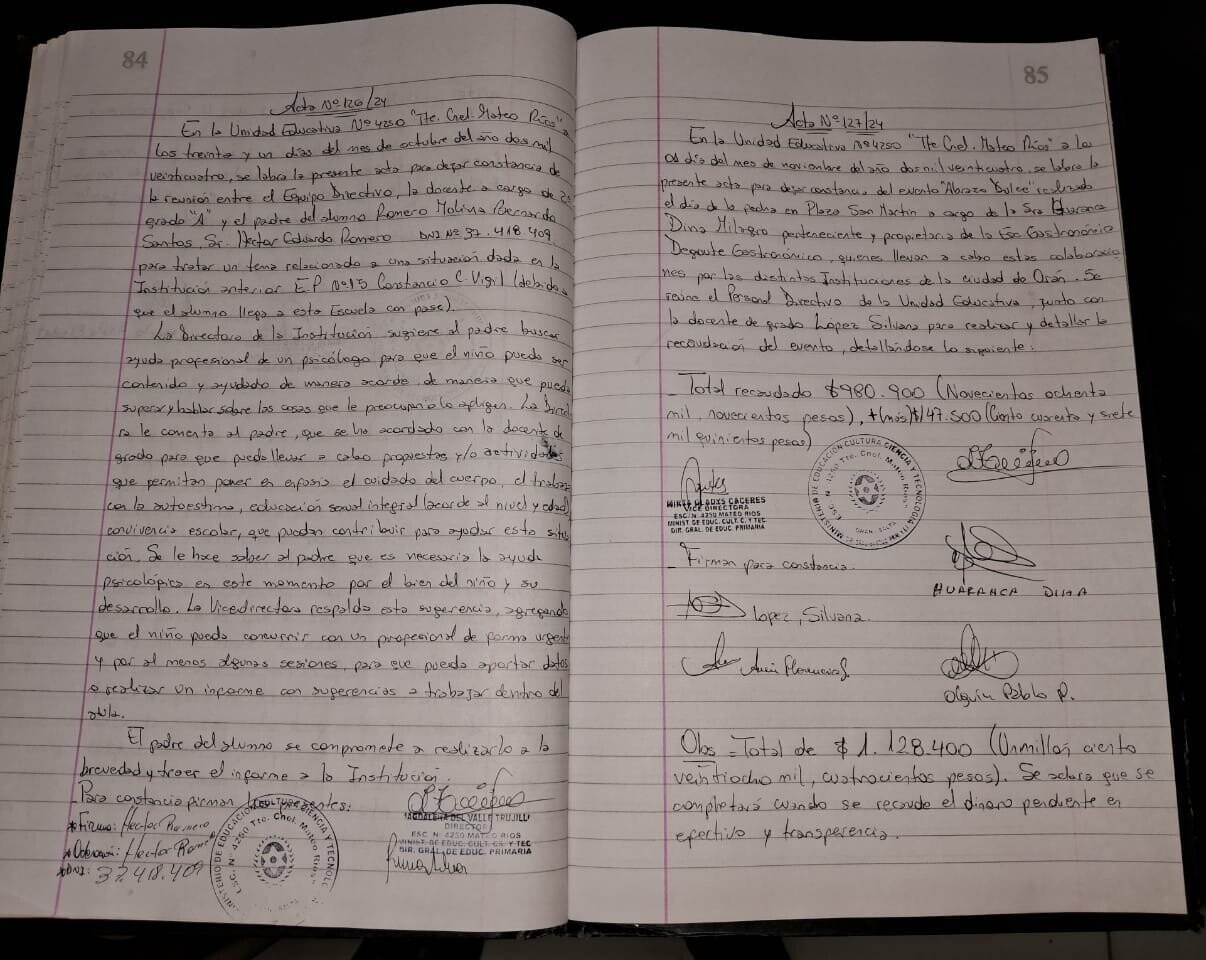 84
Acta Nº 126/24
En la Unidad Educativa Nº 4250 "Tte. Cnel. Mateo Ríos" a
los treinta y un días del mes de octubre del año dos mil
veinticuatro, se labra la presente acta para dejar constancia de
la reunión entre el Equipo Directivo, la docente a cargo de 2º
grado "A" y el padre del alumno Romero Molina Bernardo
Santos, Sr. Hector Eduardo Romero DNI Nº 37.418.409
para tratar un tema relacionado a una situación dada en la
Institución anterior EP Nº 15 Constancio C. Vigil (debido a
que el alumno llega a esta Escuela con pase).
La Directora de la Institución sugiere al padre buscar
ayuda profesional de un psicólogo para que el niño pueda ser
contenido y ayudado de manera acorde, de manera que pueda
superar y hablar sobre las cosas que le preocupan o lo afligen. La Directo
ra le comenta al padre, que se ha acordado con la docente de
grado para que pueda llevar a cabo propuestas y/o actividades
que permitan poner en énfasis el cuidado del cuerpo, el trabajo
con la autoestima, educación sexual integral (acorde al nivel y edad)
convivencia escolar, que puedan contribuir para ayudar esta situa
ción. Se le hace saber al padre que es necesaria la ayuda
psicológica en este momento por el bien del niño y su
desarrollo. La Vicedirectora respalda esta sugerencia, agregando
que el niño pueda concurrir con un profesional de forma urgente
y por al menos algunas sesiones, para que pueda aportar datos
o realizar un informe con sugerencias a trabajar dentro del
aula.
El padre del alumno se compromete a realizarlo a la
brevedad y traer el informe a la Institución.
Para constancia firman los presentes:
*Firma: Hector Romero
*Aclaración: Hector Romero
*DNI: 37.418.409
MINISTERIO DE EDUCACION CULTURA CIENCIA Y TECNOLOGIA
ESC. N° 4250 Tte. Cnel. Mateo Rios
DEL VALLE TRUJILL
DIRECTOR
ESC. N° 4250 MATEO RIOS
MINIST DE EDUC. CULT. C. Y TEC
DIR. GRAL. DE EDUC. PRIMARIA
85
Acta Nº 127/24
En la Unidad Educativa Nº 4250 "Tte Cnel. Mateo Ríos" a los
01 día del mes de noviembre del año dos mil veinticuatro, se labra la
presente acta para dejar constancia del evento "Abrazo Dulce" realizado
el día de la fecha en Plaza San Martín a cargo de la Sra Huaranca
Dina Milagro perteneciente y propietaria de la Esc Gastronómica
Degoute Gastronómico, quienes llevan a cabo estas colaboracio
nes por las distintas Instituciones de la ciudad de Orán. Se
reúne el Personal Directivo de la Unidad Educativa, junto con
la docente de grado López Silvana para realizar y detallar la
recaudación del evento, detallándose lo siguiente:
_Total recaudado $980.900 (Novecientos ochenta
mil, novecientos pesos), + (más) $147.500 (Ciento cuarenta y siete
mil quinientos pesos)
MIRTA GLADYS CACERES
VICE DIRECTORA
ESC. N° 4250 MATEO RIOS
MINIST DE EDUC. CULT. C. Y TEC.
DIR. GRAL. DE EDUC. PRIMARIA
MINISTERIO DE EDUCACION CULTURA CIENCIA Y TECNOLOGIA
ESC. N° 4250 Tte. Cnel. Mateo Rios
ORAN - SALTA
_Firman para constancia.
HUARANCA DINA
Lopez, Silvana.
Olguin Pablo R.
Obs = Total de $1.128.400 (Un millón ciento
veintiocho mil, cuatrocientos pesos). Se aclara que se
completará cuando se recaude el dinero pendiente en
efectivo y transferencia.